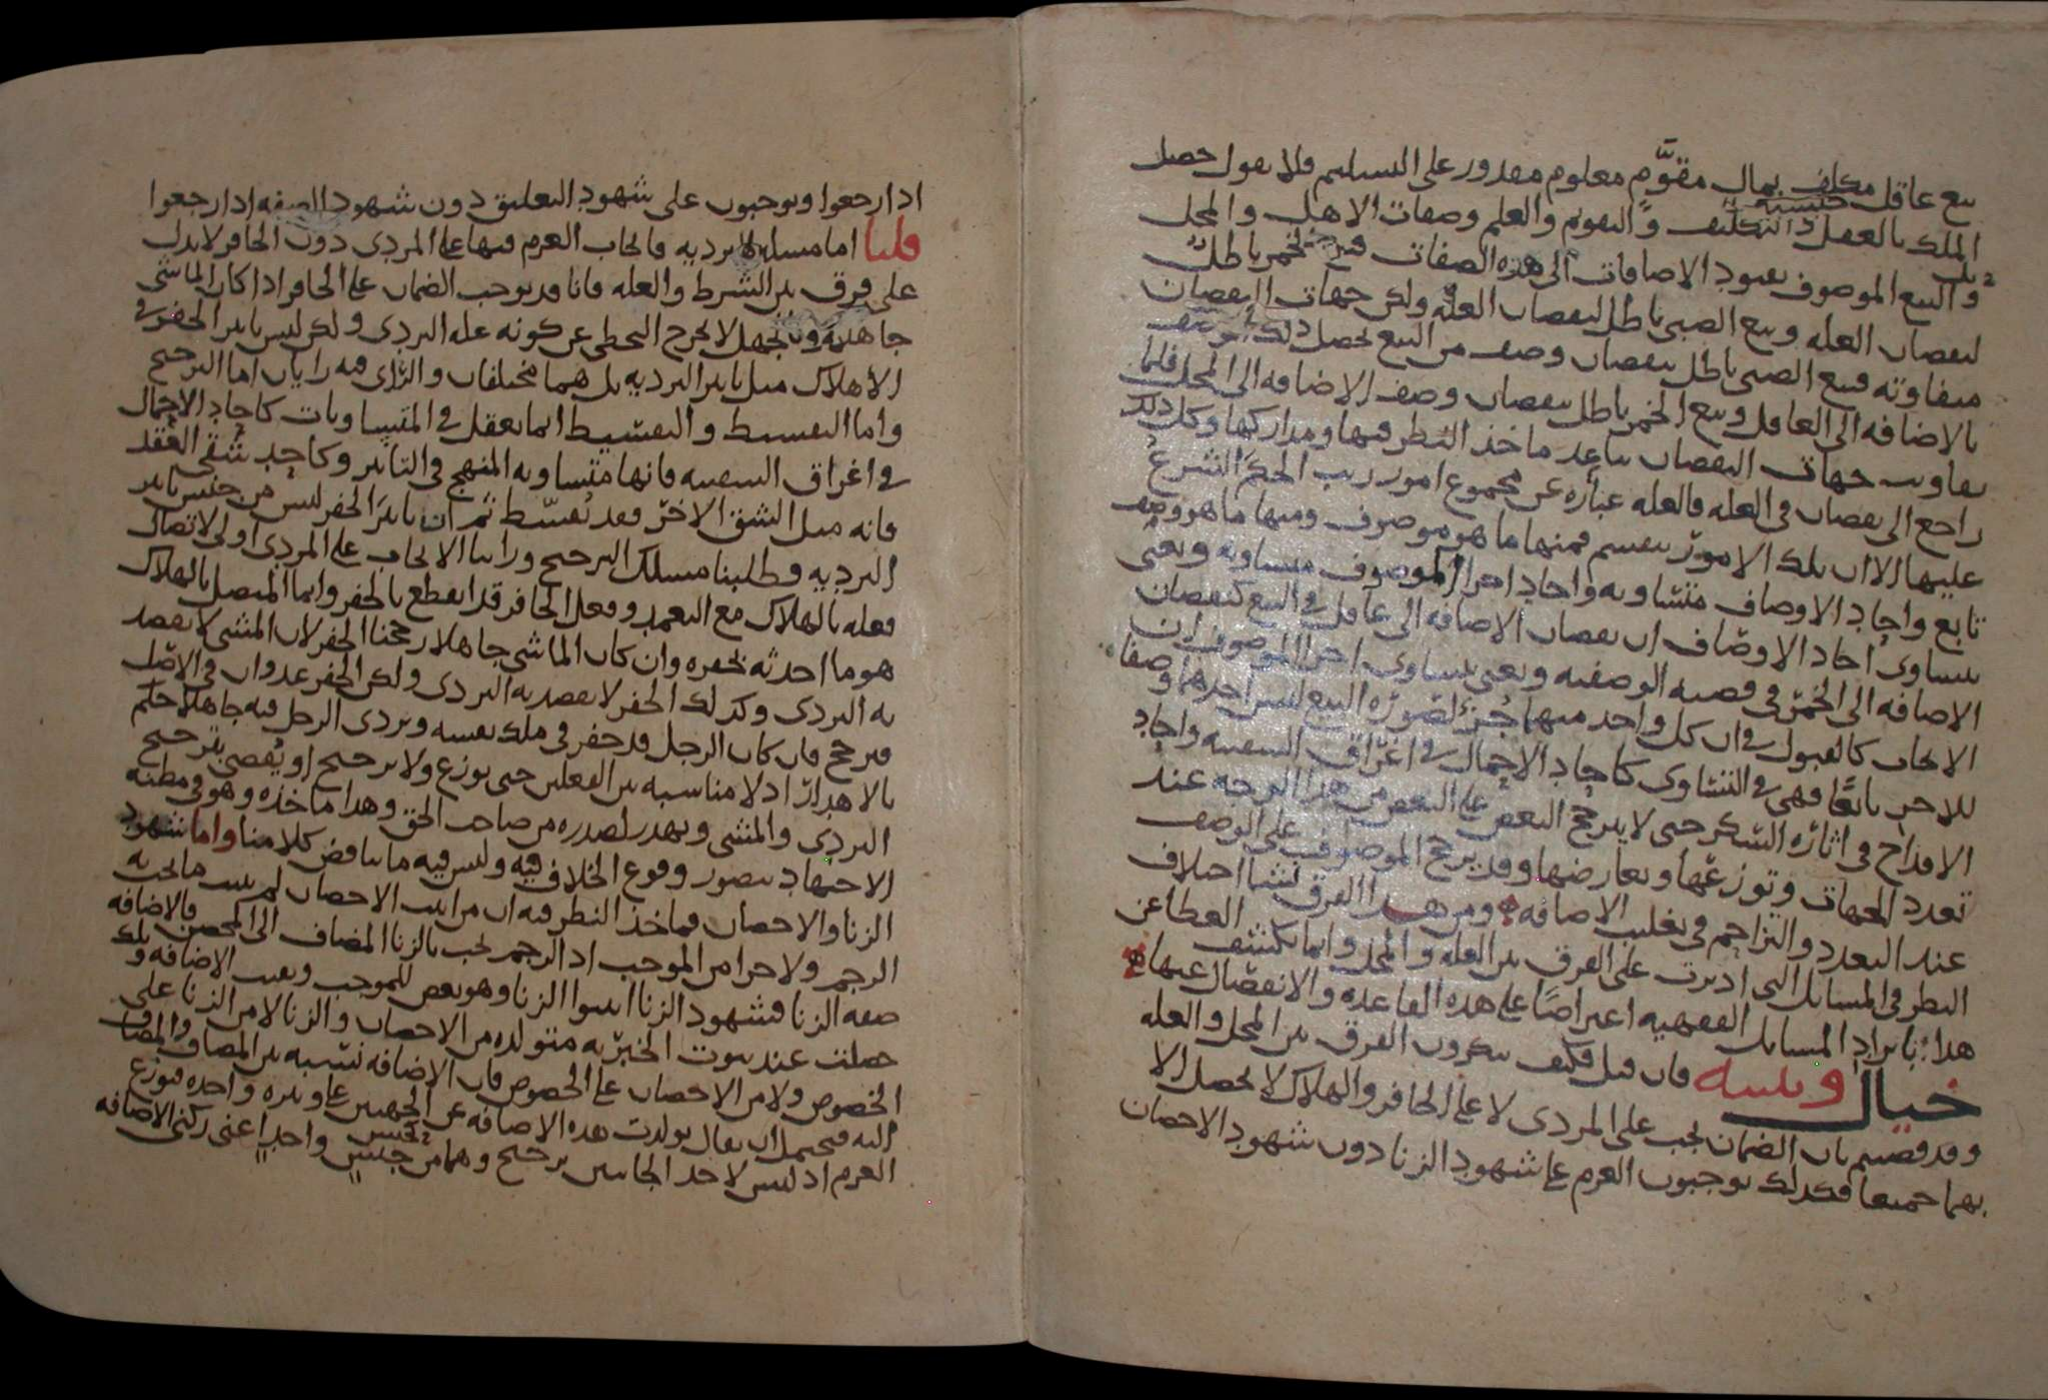 بيع عاقل مكلف بمال مقوَّم معلوم مقدور على التسليم فلا نقول حصل
الملك بالعقل والتكليف والتقويم والعلم وصفات الاهل والمحل
بل والبيع الموصوف بقيود الاضافات الى هذه الصفات فبيع الخمر باطل
لنقصان العلة وبيع الصبي باطل لنقصان العلة ولكن جهات النقصان
متفاوته فبيع الصبي باطل بنقصان وصف من البيع يحصل ذلك
بالاضافه الى العاقل وبيع الخمر باطل بنقصان وصف الاضافه الى المحل فلما
تفاوت جهات النقصان تباعد ماخذ النظر فيها ومداركها وكل ذلك
راجع الى نقصان في العله فالعله عباره عن مجموع امور رتب الحكم الشرع
عليها الا ان تلك الامور تنقسم فمنها ما هو موصوف ومنها ما هو وصف
تابع واحاد الاوصاف متساويه واحاد اجزا الموصوف متساويه ونعني
بتساوي احاد الاوصاف ان نقصان الاضافه الى عاقل في البيع كنقصان
الاضافه الى الخمر في قضيه الوصفيه ونعني بتساوي اجزا الموصوف ان
الايجاب كالقبول في ان كل واحد منهما جزء لصوره البيع ليس احدهما وصفا
للاخر تابعا فهي في التساوي كاحاد الاحمال في اغراق السفينه واحاد
الاقداح في اثاره السكر حتى لا يترجح البعض على البعض من هذا الوجه عند
تعدد الجهات وتوزعها وتعارضها وقد يرجح الموصوف على الوصف
عند التعدد والتزاحم في تغليب الاضافه ومن هذا الفرق نشا اختلاف
النظر في المسائل التي اديرت على الفرق بين العله والمحل وانما ينكشف الغطا عن
هذا بايراد المسائل الفقهيه اعتراضا على هذه القاعده والانفصال عنها
خيال وتنبيه فان قيل فكيف تنكرون الفرق بين المحل والعله
وقد قضيتم بان الضمان يجب على المردي لا على الحافر والهلاك لا يحصل الا
بهما جميعا فكذلك توجبون الغرم على شهود الزنا دون شهود الاحصان
اذا رجعوا وتوجبون على شهود التعليق دون شهود الصفه اذا رجعوا
قلنا اما مسله التردية فايجاب الغرم فيها على المردي دون الحافر لا يدل
على فرق بين الشرط والعله فانا قد نوجب الضمان على الحافر اذا كان الماشي
جاهلا وبالجهل لا يخرج التخطي عن كونه علة التردي ولكن ليس تاثير الحفر في
الاهلاك مثل تاثير التردية بل هما مختلفان والراي فيه رايان اما الترجيح
واما التقسيط والتقسيط انما يعقل في المتساويات كاحاد الاحمال
في اغراق السفينه فانها متساويه المنهج في التاثير وكاحد شقي العقد
فانه مثل الشق الاخر فقد تقسط ثم ان تاثير الحفر ليس من جنس تاثير
الترديه فطلبنا مسلك الترجيح وراينا الايجاب على المردي اولى لاتصال
فعله بالهلاك مع التعمد وفعل الحافر قد انقطع بالحفر وانما المتصل بالهلاك
هو ما احدثه بحفره وان كان الماشي جاهلا رجحنا الحفر لان المشي لا يقصد
به التردي وكذلك الحفر لا يقصد به التردي ولكن الحفر عدوان في الاصل
فترجح فان كان الرجل قد حفر في ملك نفسه وتردى الرجل فيه جاهلا حكم
بالاهدار اذ لا مناسبه بين الفعلين حتى يوزع ولا ترجيح او يقضى بترجيح
التردي والمشي ويهدر لصدره من صاحب الحق وهذا ماخذه وهو في مظنه
الاجتهاد يتصور وقوع الخلاف فيه وليس فيه ما يناقض كلامنا واما شهود
الزنا والاحصان فماخذ النظر فيه ان من اثبت الاحصان لم يثبت ما يجب به
الرجم ولا جزا من الموجب اذ الرجم يجب بالزنا المضاف الى المحصن فالاضافه
صفه الزنا فشهود الزنا اثبتوا الزنا وهو بعض للموجب وبقيت الاضافه وتلك
حصلت عند ثبوت الخيريه متولده من الاحصان والزنا لا من الزنا على
الخصوص ولا من الاحصان على الخصوص فان الاضافه نسبه بين المضاف والمضاف
اليه فيحتمل ان يقال تولدت هذه الاضافه عن الجهتين على وتيره واحده فيوزع
الغرم اذ ليس لاحد الجانبين ترجيح وهما من جنس واحد اعني ركني الاضافه